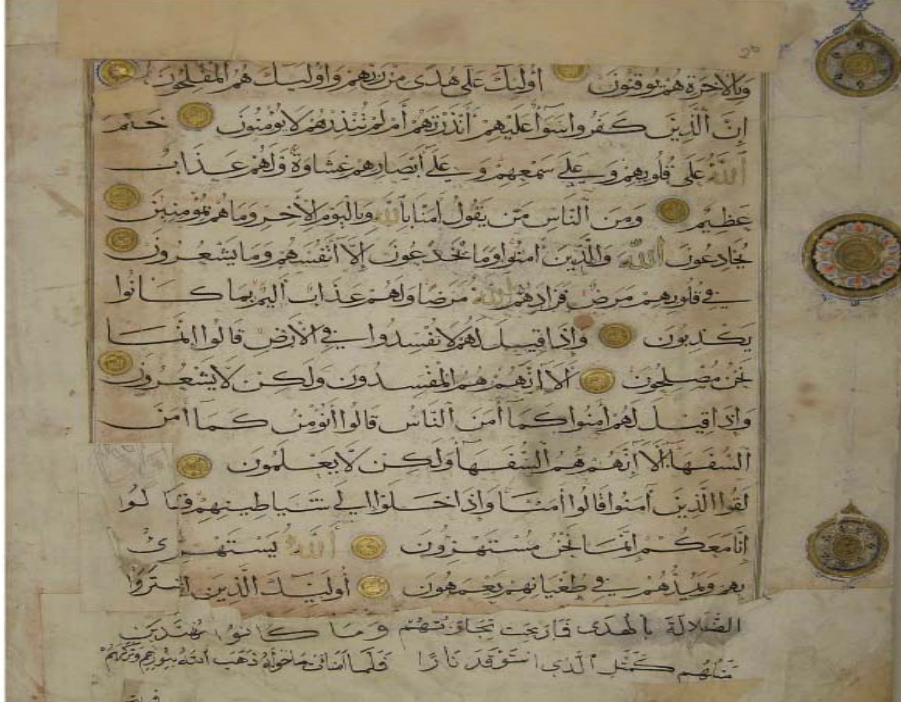 وبالآخرة هم يوقنون أولئك على هدى من ربهم وأولئك هم المفلحون
إن الذين كفروا سواء عليهم أأنذرتهم أم لم تنذرهم لا يؤمنون ختم
الله على قلوبهم وعلى سمعهم وعلى أبصارهم غشاوة ولهم عذاب
عظيم ومن الناس من يقول آمنا بالله وباليوم الآخر وما هم بمؤمنين
يخادعون الله والذين آمنوا وما يخدعون إلا أنفسهم وما يشعرون
في قلوبهم مرض فزادهم الله مرضا ولهم عذاب أليم بما كانوا
يكذبون وإذا قيل لهم لا تفسدوا في الأرض قالوا إنما
نحن مصلحون ألا إنهم هم المفسدون ولكن لا يشعرون
وإذا قيل لهم آمنوا كما آمن الناس قالوا أنؤمن كما آمن
السفهاء ألا إنهم هم السفهاء ولكن لا يعلمون
لقوا الذين آمنوا قالوا آمنا وإذا خلوا إلى شياطينهم قالوا
إنا معكم إنما نحن مستهزون الله يستهزئ
بهم ويمدهم في طغيانهم يعمهون أولئك الذين اشتروا
الضلالة بالهدى فما ربحت تجارتهم وما كانوا مهتدين
مثلهم كمثل الذي استوقد نارا فلما أضاءت ما حوله ذهب الله بنورهم وتركهم